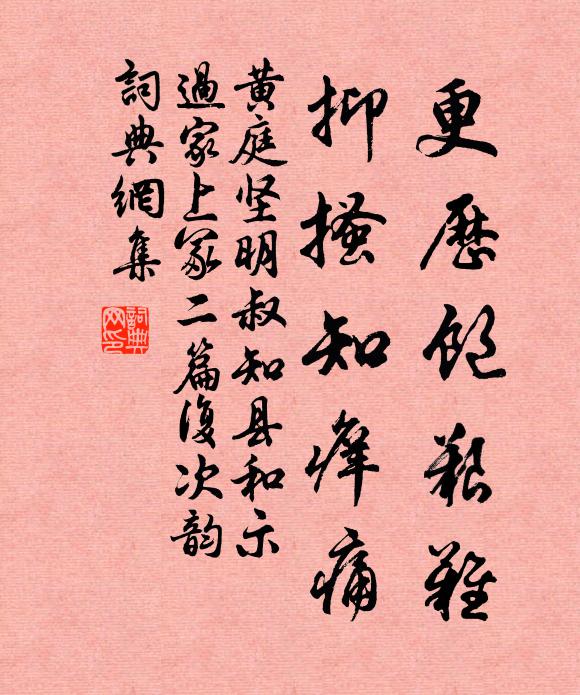 更歷飽艱難
抑搔知痒痛
黄庭坚明叔知县和示
過家上冢二篇復次韵
詞典網集
詞典网印